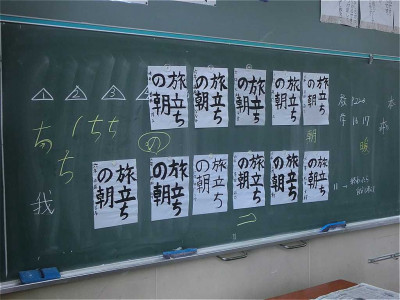 1 2 3
旅立ち
の朝
旅立ち
の朝
旅立ち
の朝
旅立ち
の朝
旅立ち
の朝
ち
ちち
の
朝
我
旅立ち
の朝
旅立ち
の朝
旅立ち
の朝
旅立ち
の朝
旅立ち
の朝
旅立ち
の朝
学 16 17
本